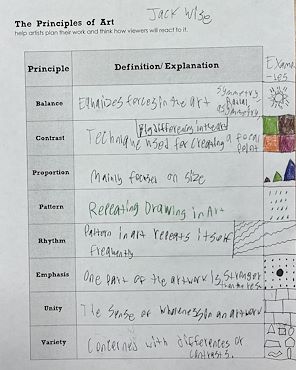 The Principles of Art
Jack Wise
help artists plan their work and think how viewers will react to it.
Principle
Definition/ Explanation
Exam
-les
Balance
Equalizes forces in the art
Symmetry
Radial
asymmetry
Contrast
Big differences in the art
Technique used for creating a focal
point
Proportion
Mainly focuses on size
Pattern
Repeating Drawing in Art
Rhythm
Pattern in art repeats itself
Frequently
Emphasis
One Part of the artwork is stronger
than the rest
Unity
The sense of wholeness in an artwork
Variety
Concerned with differences or
contrasts.